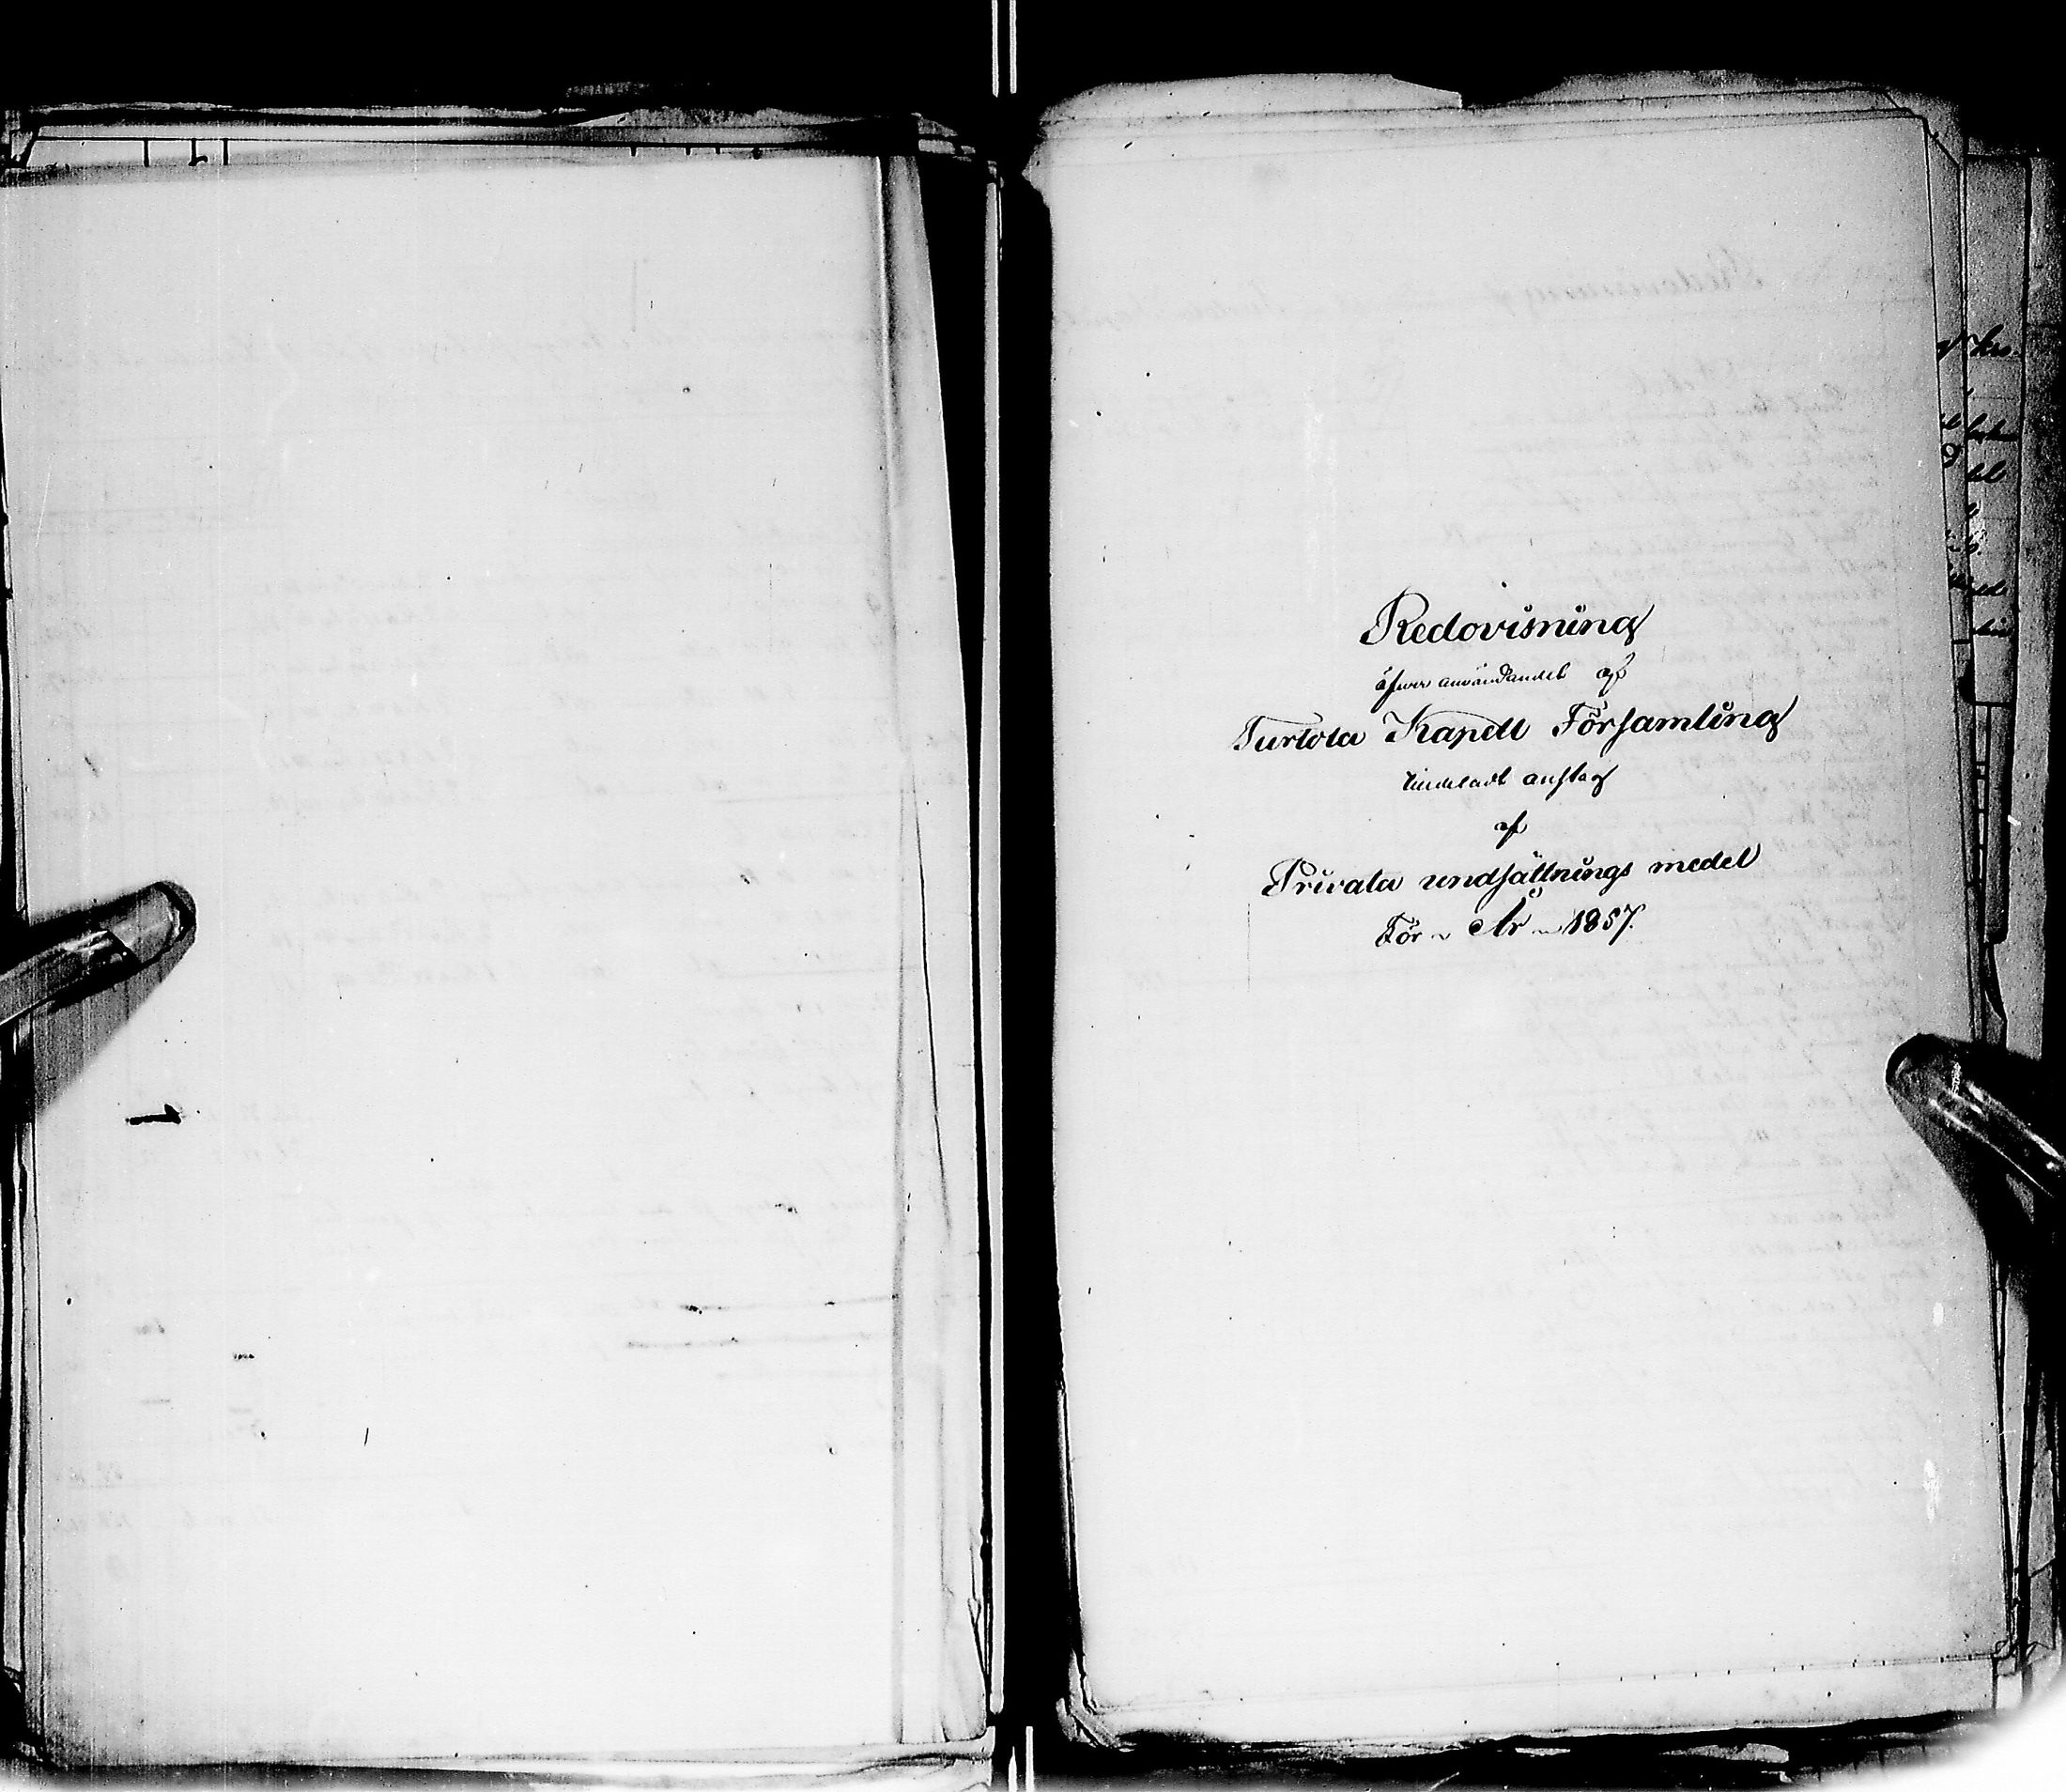 Redovisning
öfwer användandet af
Turtola Kapell Församling
tindeladt anslag
af
Privata undsättnings medel
För År 1857.